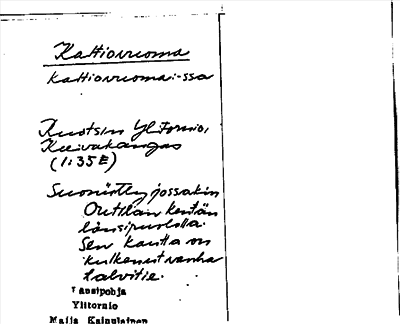 Kattiovuoma
Kattiovuoma:-ssa
Ruotsin Ylitornio,
Kuivakangas
(1:35E)
Suoniitty jossakin
Outilan kentän
länsipuolella.
Sen kautta on
kulkenut vanha
talvitie.
Länsipohja
Ylitornio
Maija Kainulainen